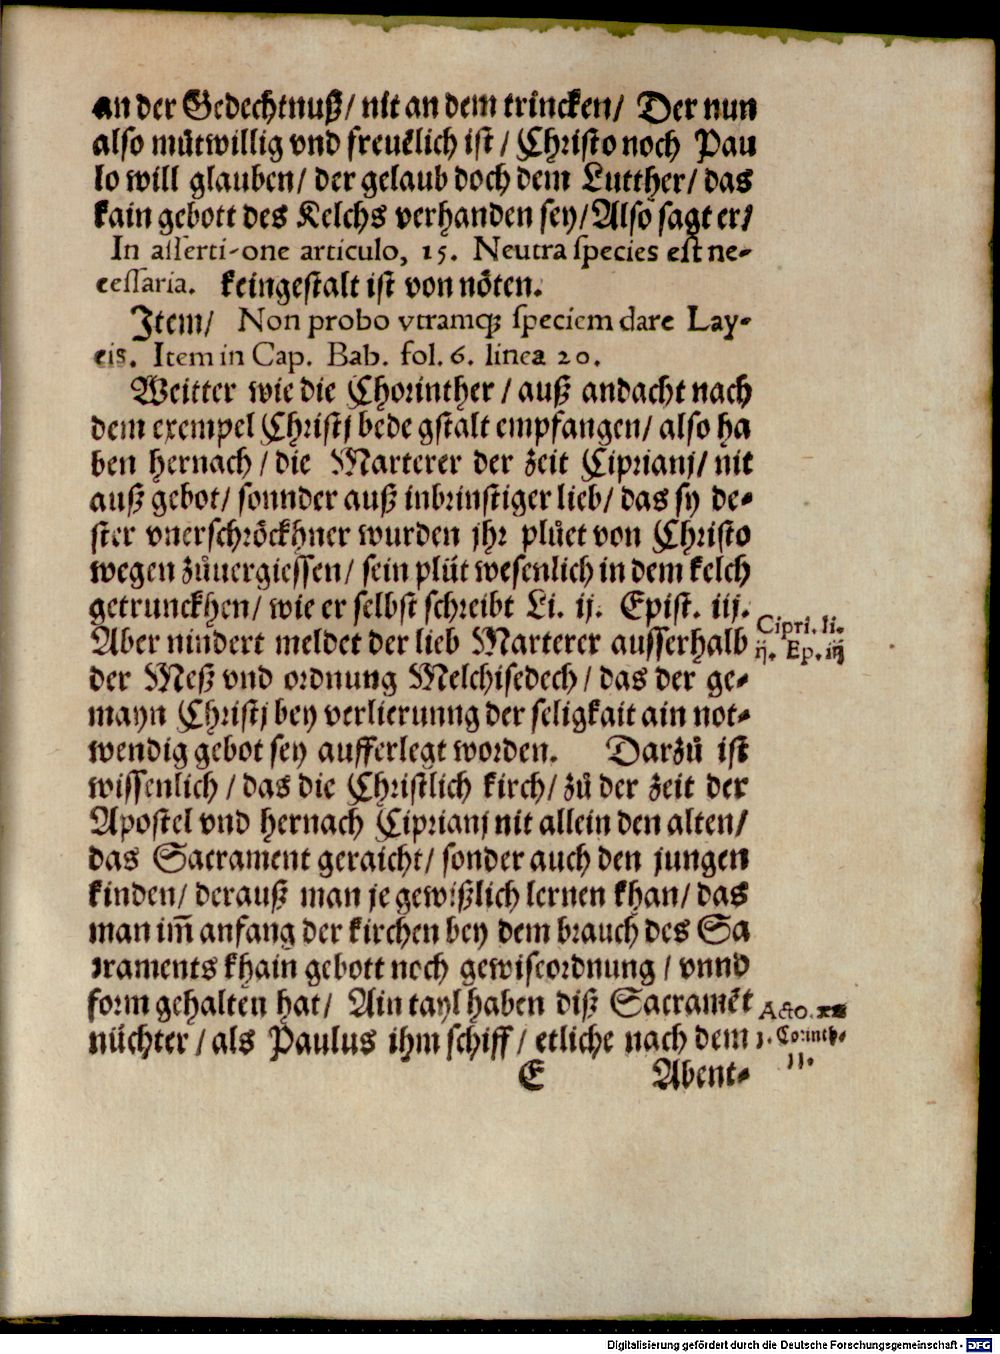 an der Gedechtnuß/ nit an dem trincken/ Der nun
also mütwillig vnd freuelich ist/ Christo noch Pau
lo will glauben/ der gelaub doch dem Lutther/ das
kain gebott des Kelchs verhanden sey/ Also sagt er/
In asserti-one articulo, 15. Neutra species est ne-
cessaria. keingestalt ist von nöten.
Item/ Non probo vtramqꝫ speciem dare Lay-
cis. Item in Cap. Bab. fol. 6. linea 20.
Weitter wie die Chorinther/ auß andacht nach
dem exempel Christj bede gstalt empfangen/ also ha
ben hernach/ die Marterer der zeit Ciprianj/ nit
auß gebot/ sonnder auß inbrinstiger lieb/ das sy de-
ster vnerschröckhner wurden jhr plůet von Christo
wegen zůuergiessen/ sein plůt wesenlich in dem kelch
getrunckhen/ wie er selbst schreibt Li. ij. Epist. iij.
Cipri. li.
Aber nindert meldet der lieb Marterer ausserhalb
ij. Ep. iij
der Meß vnd ordnung Melchisedech/ das der ge-
mayn Christj bey verlierunng der seligkait ain not-
wendig gebot sey aufferlegt worden. Darzů ist
wissenlich/ das die Christlich kirch/ zů der zeit der
Apostel vnd hernach Ciprianj nit allein den alten/
das Sacrament geraicht/ sonder auch den jungen
kinden/ derauß man je gewißlich lernen khan/ das
man im̃ anfang der kirchen bey dem brauch des Sa
craments khain gebott noch gewiseordnung/ vnnd
form gehalten hat/ Ain tayl haben diß Sacramēt
Acto. xx
nüchter/ als Paulus ihm schiff/ etliche nach dem
1. Corinth.
11.
E Abent-
Digitalisierung gefördert durch die Deutsche Forschungsgemeinschaft - DFG